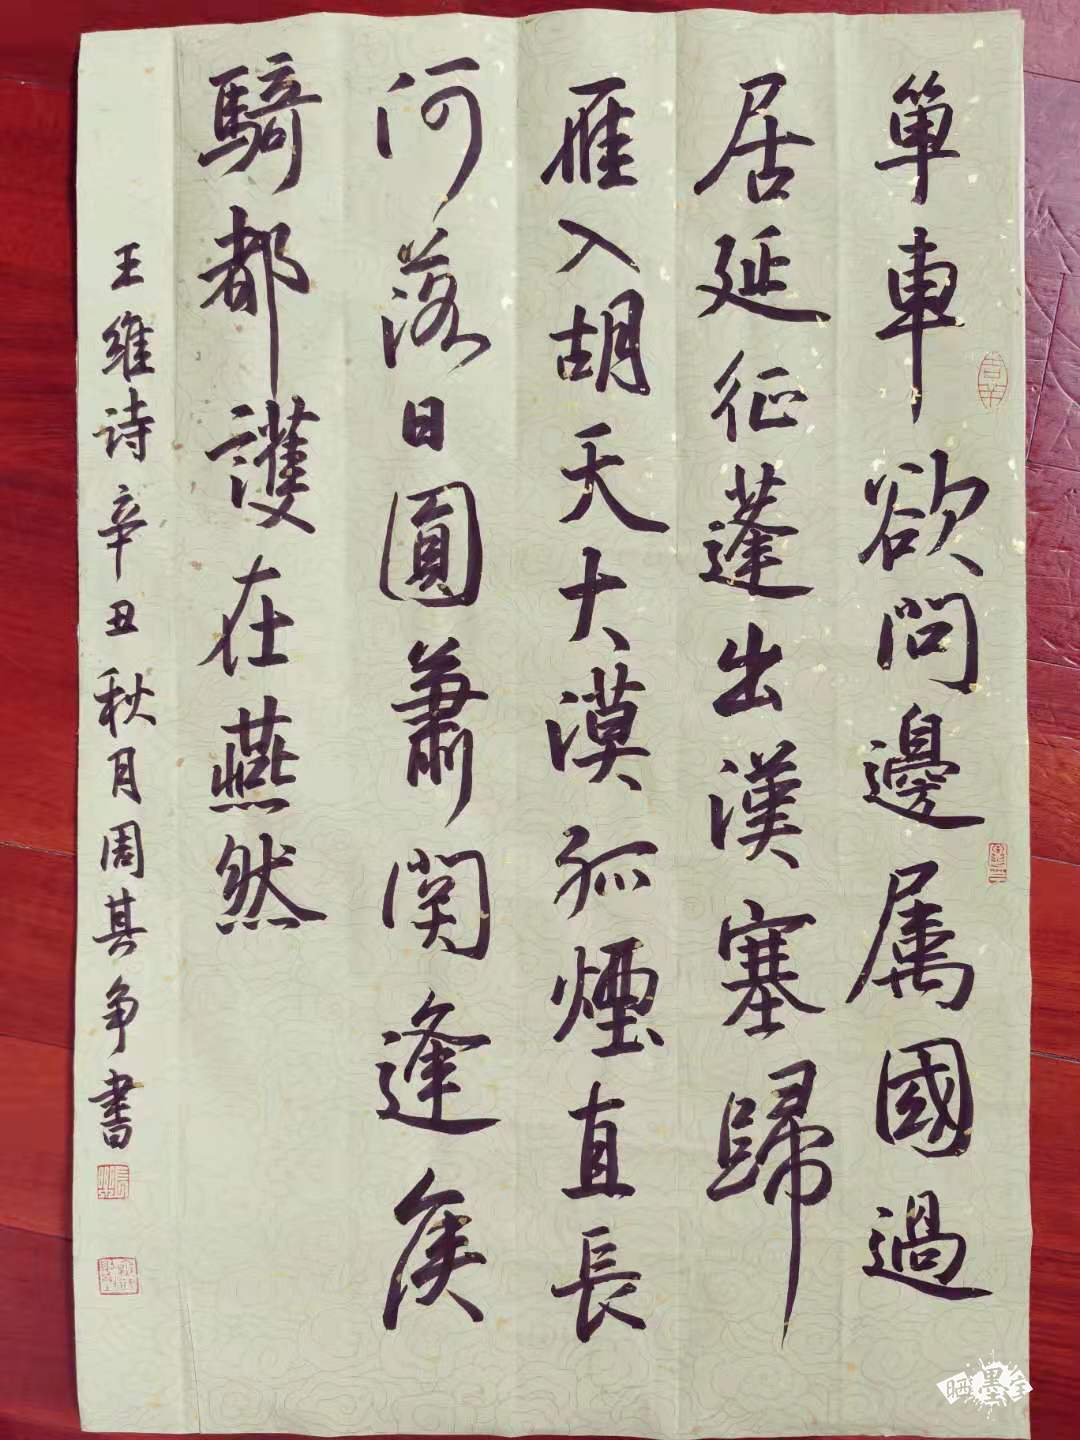 單車欲問邊属國過
居延征蓬出漢塞歸
雁入胡天大漠孤煙直長
河落日圓蕭関逢侯
騎都護在燕然
王維诗辛丑秋月周其争書
晒墨宝